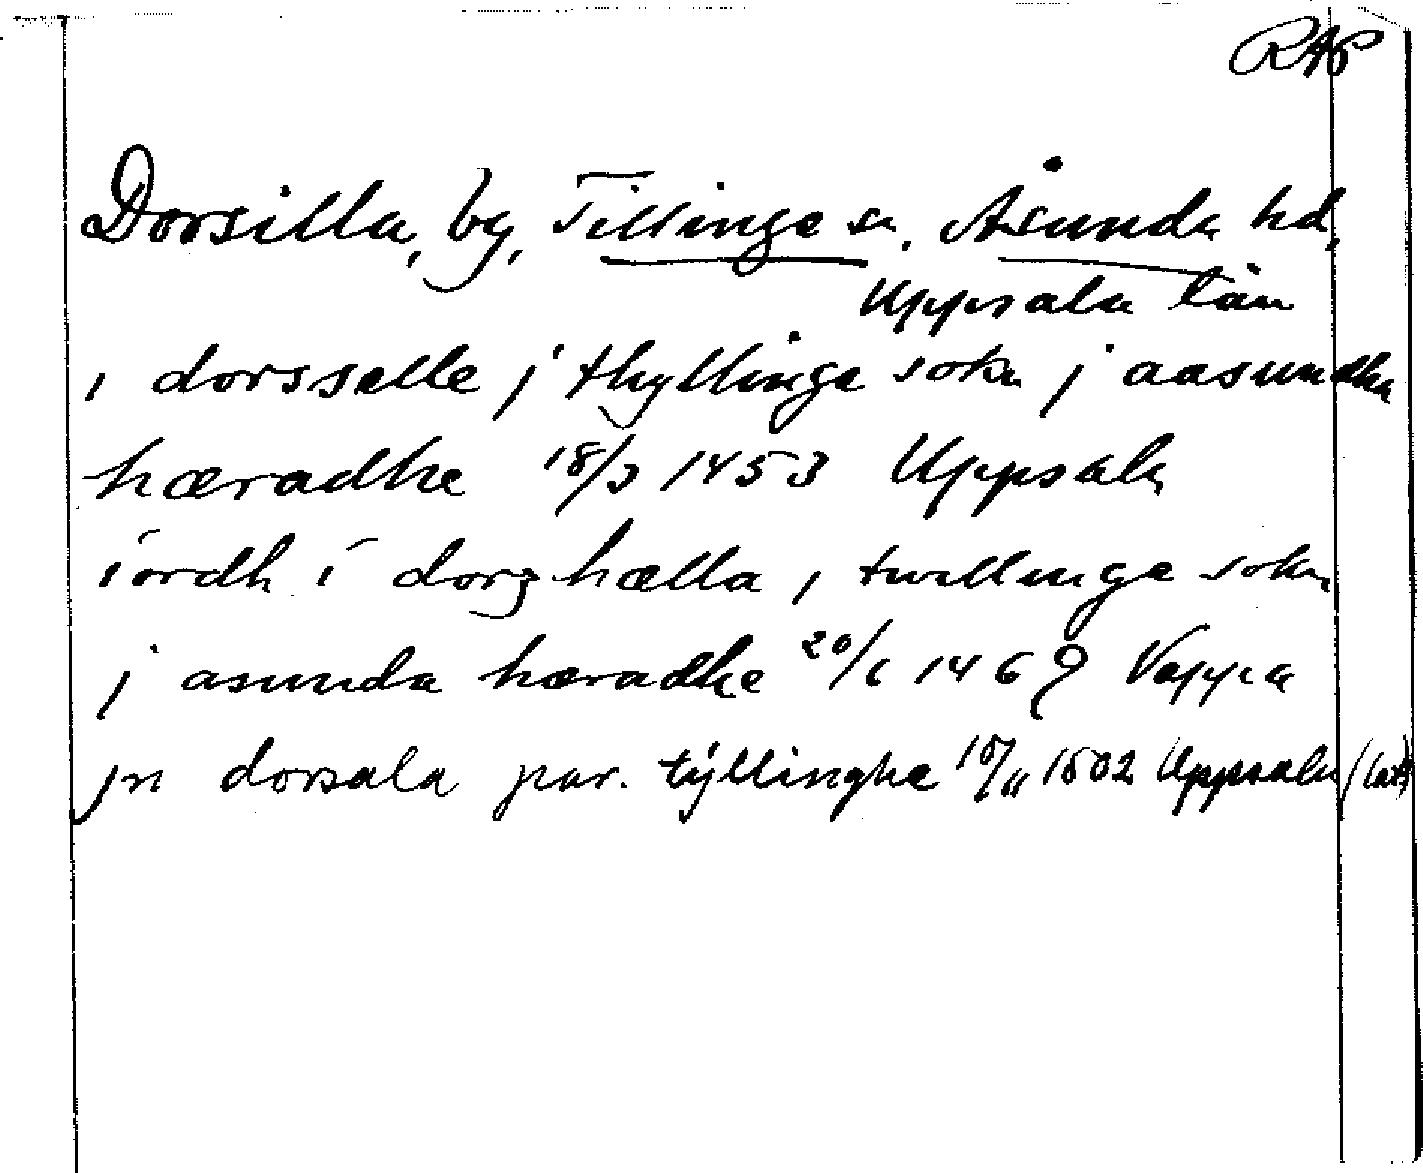 RAP
Dorsilla, by, Tillinge sn, Åsunda hd,
Uppsala län
i dorsselle j thyllinge sokn j aasundha
hæradhe 18/3 1453 Uppsala
iordh i dorghælla, twllinge sokn
j asunda hæradhe 20/6 1469 Vappa
jn dorsala par. tÿllinghe 10/11 1502 Uppsala (lat)